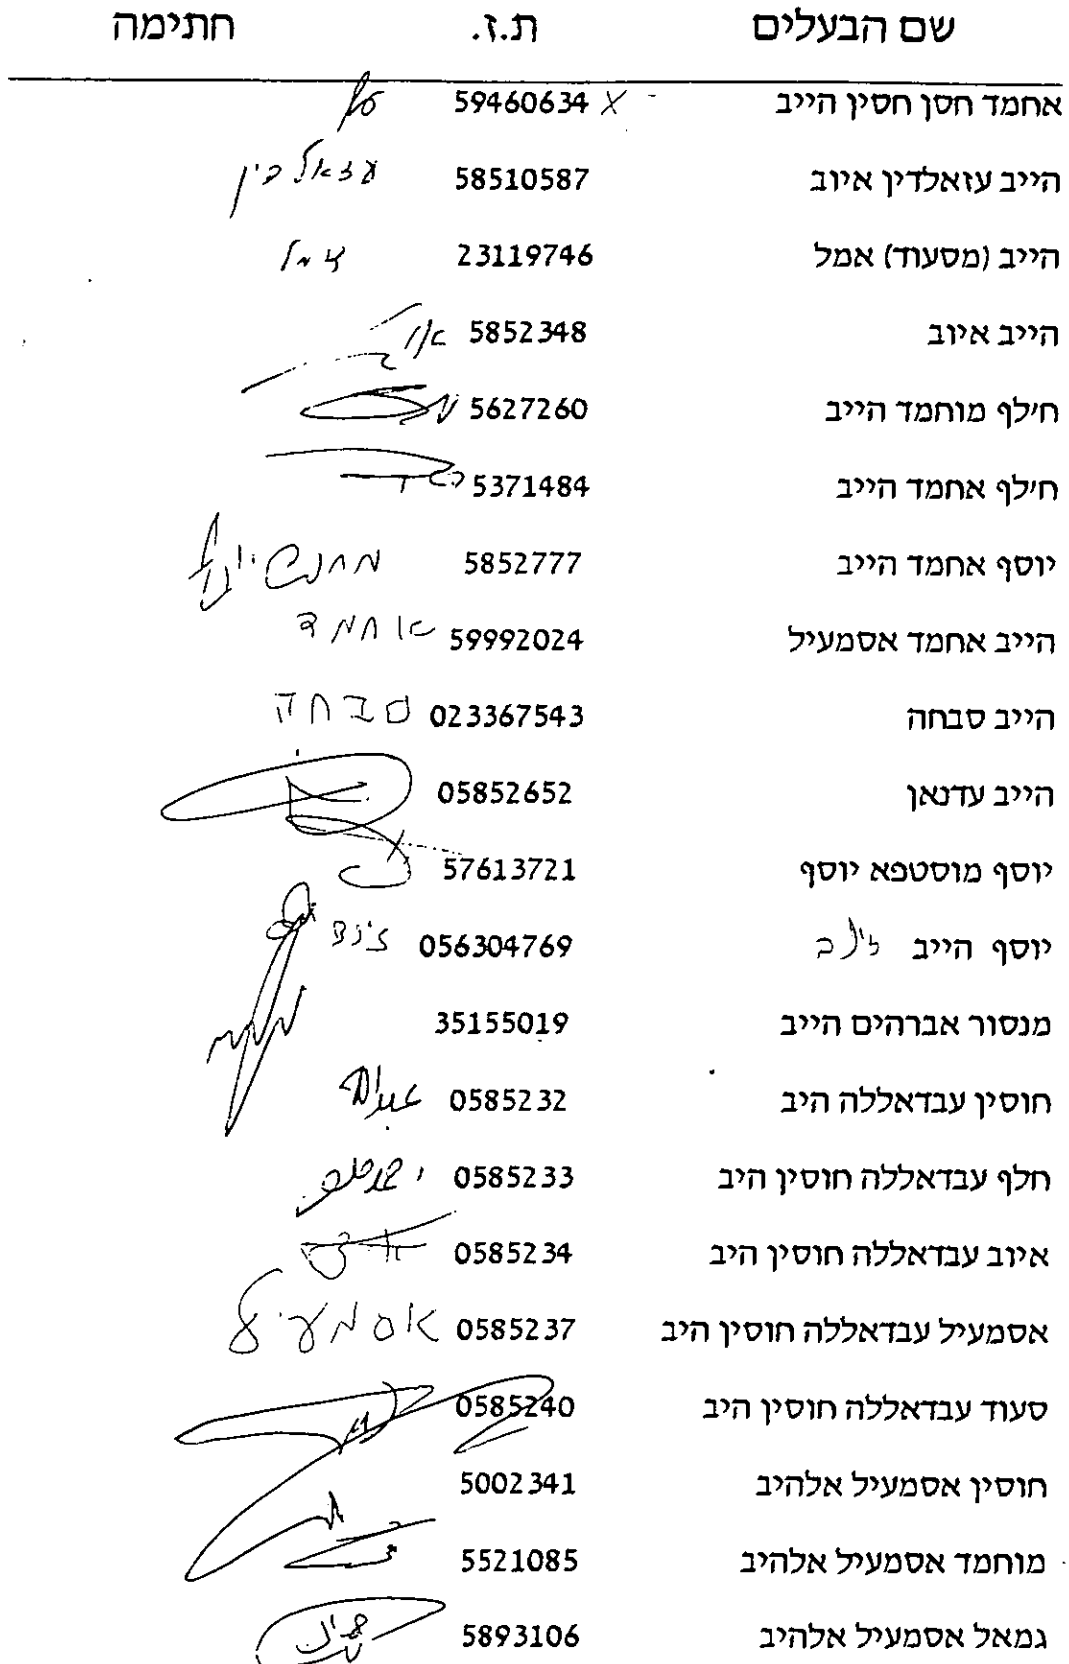 שם הבעלים ת.ז. חתימה
אחמד חסן חסין הייב 59460634 X
הייב עזאלדין איוב 58510587 עזאלדין
הייב (מסעוד) אמל 23119746 אמל
הייב איוב 5852348
ח'לף מוחמד הייב 5627260
ח'לף אחמד הייב 5371484
יוסף אחמד הייב 5852777
הייב אחמד אסמעיל 59992024 אחמד
הייב סבחה 023367543 סבחה
הייב עדנאן 05852652
יוסף מוסטפא יוסף 57613721
יוסף הייב זינב 056304769 זינב
מנסור אברהים הייב 35155019
חוסין עבדאללה היב 0585232
חלף עבדאללה חוסין היב 0585233
איוב עבדאללה חוסין היב 0585234
אסמעיל עבדאללה חוסין היב 0585237 אסמעיל
סעוד עבדאללה חוסין היב 0585240
חוסין אסמעיל אלהיב 5002341
מוחמד אסמעיל אלהיב 5521085
גמאל אסמעיל אלהיב 5893106